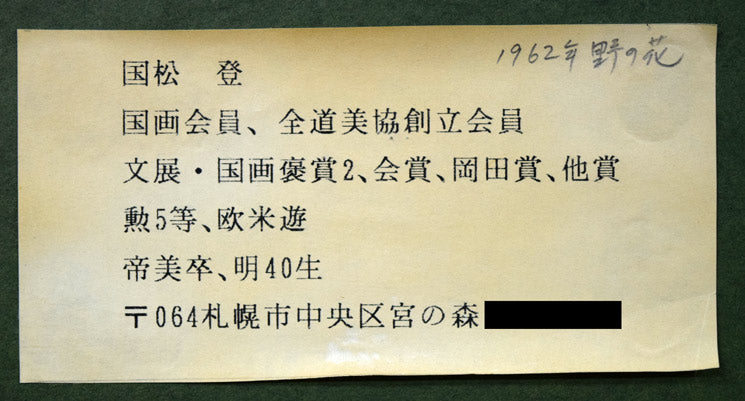 1962年 野の花
国松 登
国画会員、全道美協創立会員
文展・国画褒賞2、会賞、岡田賞、他賞
勲5等、欧米遊
帝美卒、明40生
〒064札幌市中央区宮の森